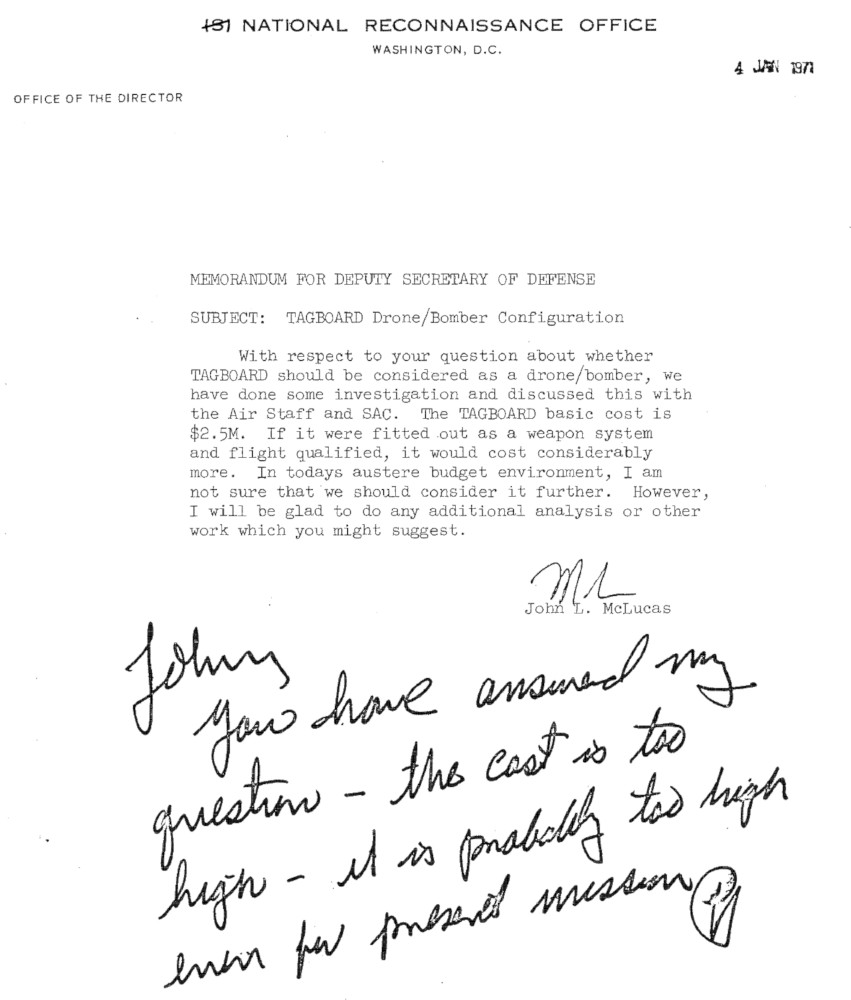 (S) NATIONAL RECONNAISSANCE OFFICE
WASHINGTON, D.C.
4 JAN 1971
OFFICE OF THE DIRECTOR
MEMORANDUM FOR DEPUTY SECRETARY OF DEFENSE
SUBJECT: TAGBOARD Drone/Bomber Configuration
With respect to your question about whether
TAGBOARD should be considered as a drone/bomber, we
have done some investigation and discussed this with
the Air Staff and SAC. The TAGBOARD basic cost is
$2.5M. If it were fitted out as a weapon system
and flight qualified, it would cost considerably
more. In todays austere budget environment, I am
not sure that we should consider it further. However,
I will be glad to do any additional analysis or other
work which you might suggest.
John L. McLucas
John
You have answered my
question – the cost is too
high – it is probably too high
even for present mission